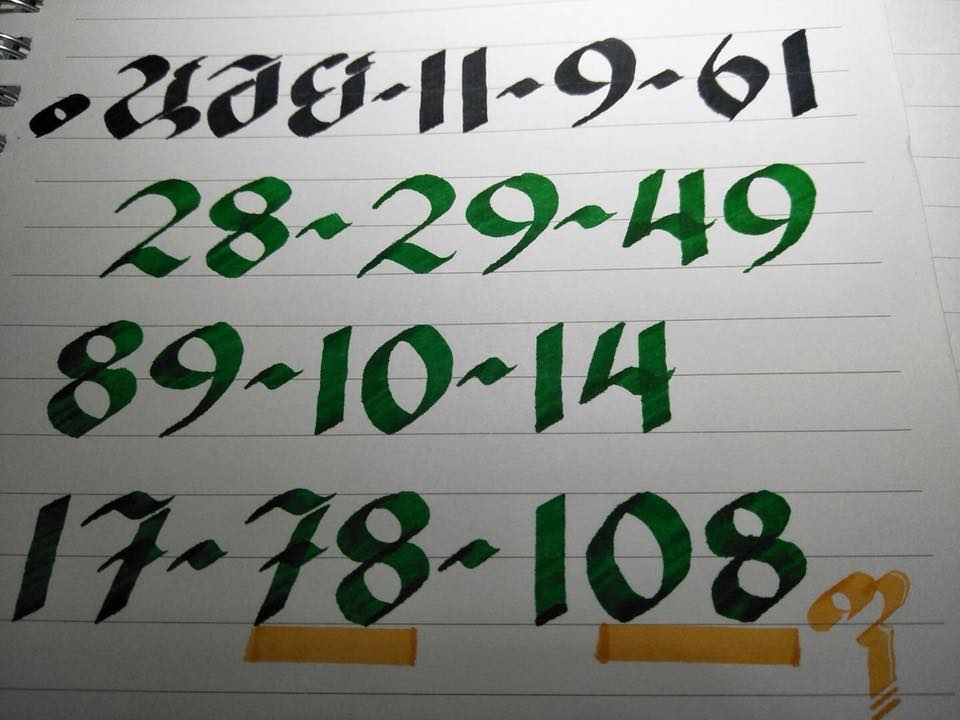 11-9-61
28-29-49
89-10-14
17-78-108